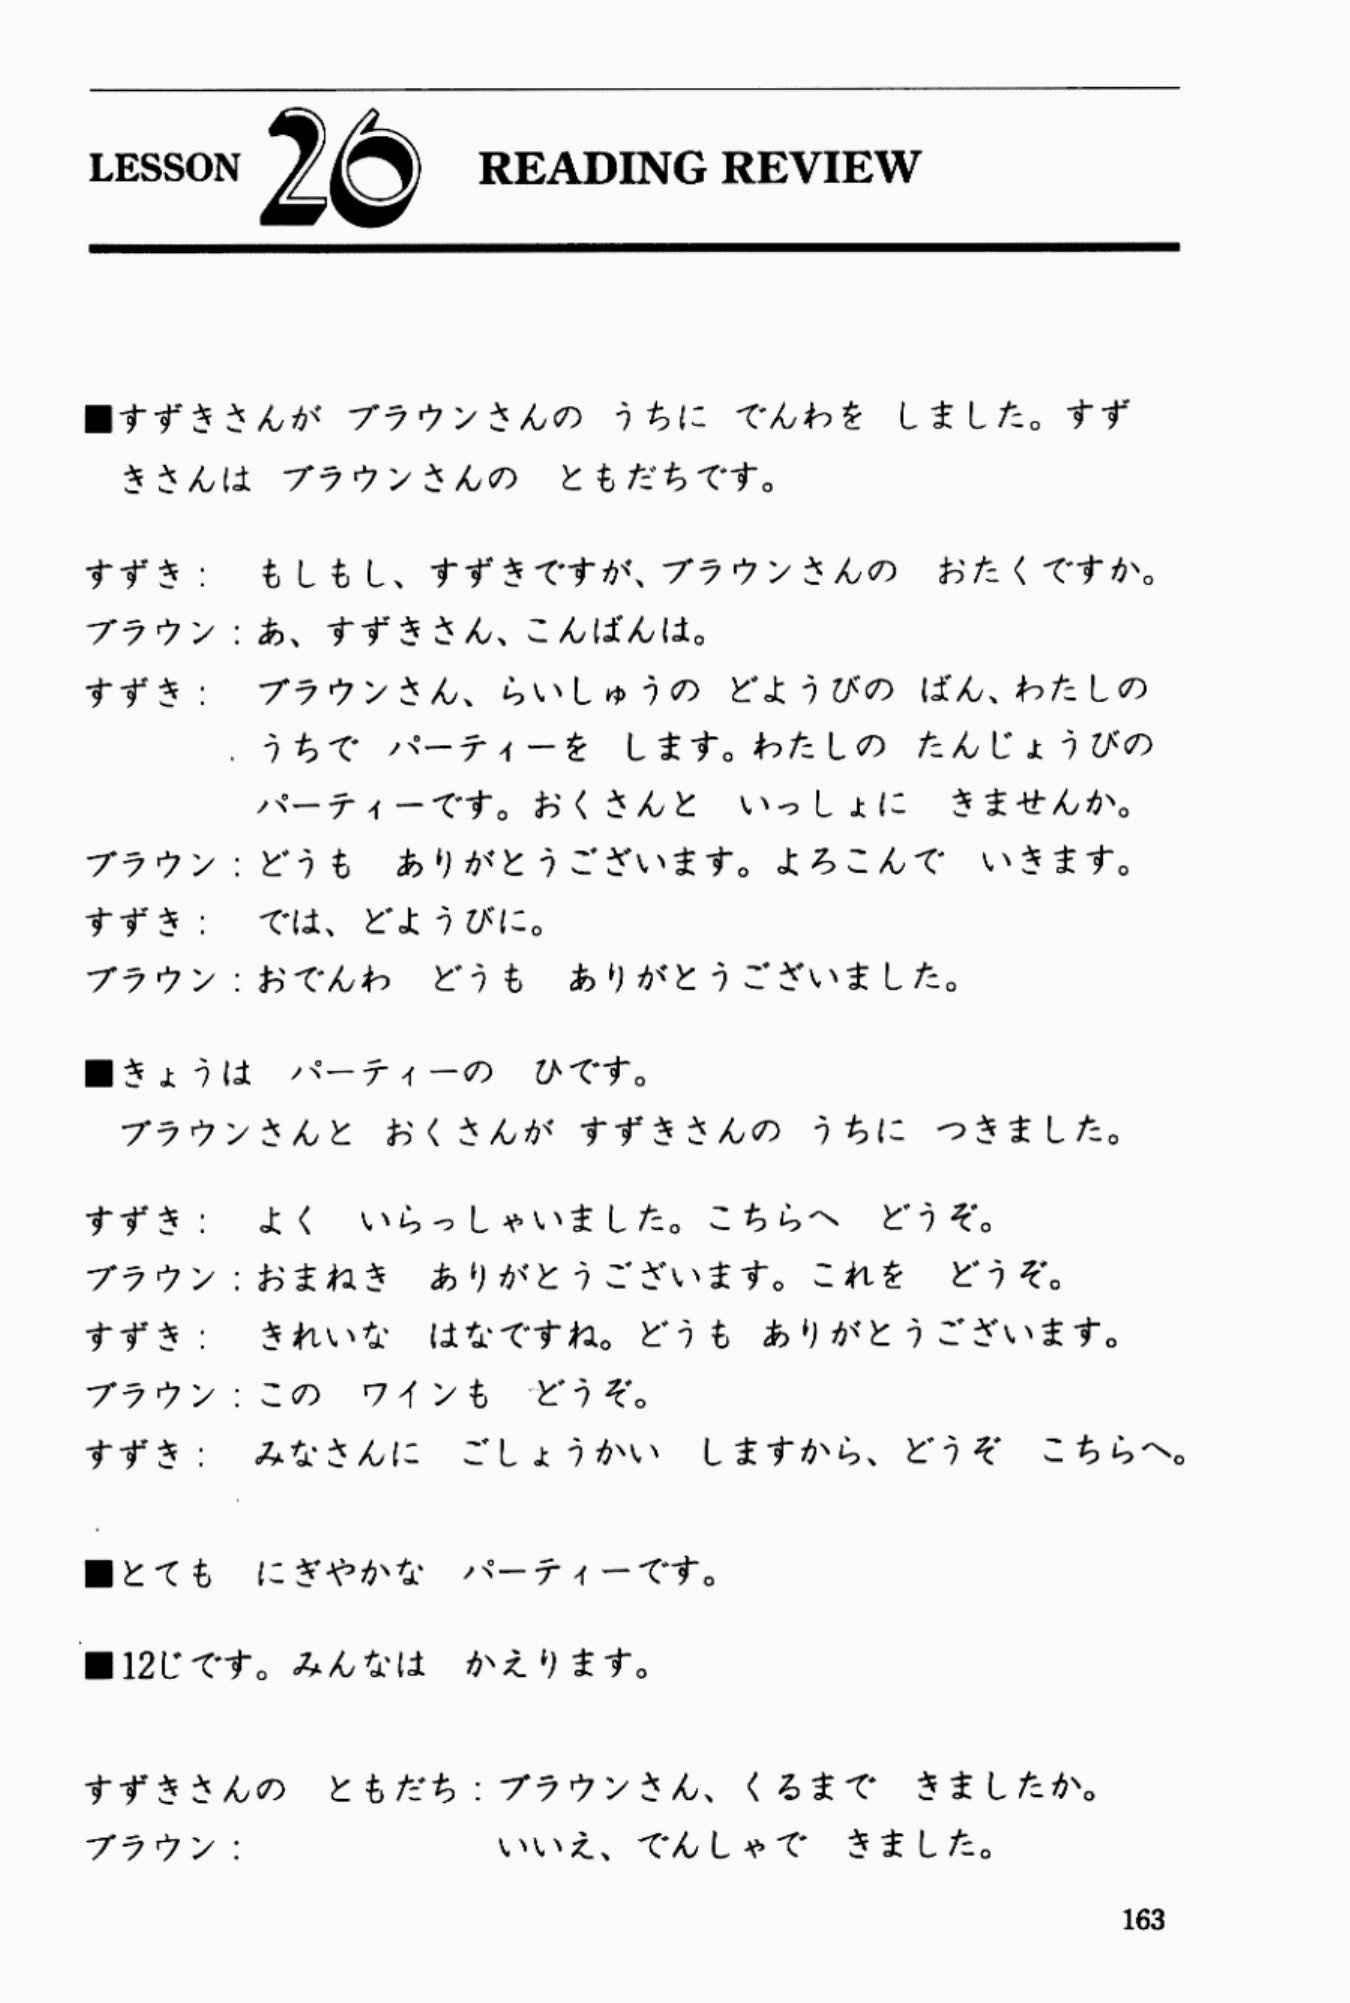 LESSON 26 READING REVIEW
■すずきさんが ブラウンさんの うちに でんわを しました。すず
きさんは ブラウンさんの ともだちです。
すずき： もしもし、すずきですが、ブラウンさんの おたくですか。
ブラウン：あ、すずきさん、こんばんは。
すずき： ブラウンさん、らいしゅうの どようびの ばん、わたしの
うちで パーティーを します。わたしの たんじょうびの
パーティーです。おくさんと いっしょに きませんか。
ブラウン：どうも ありがとうございます。よろこんで いきます。
すずき： では、どようびに。
ブラウン：おでんわ どうも ありがとうございました。
■きょうは パーティーの ひです。
ブラウンさんと おくさんが すずきさんの うちに つきました。
すずき： よく いらっしゃいました。こちらへ どうぞ。
ブラウン：おまねき ありがとうございます。これを どうぞ。
すずき： きれいな はなですね。どうも ありがとうございます。
ブラウン：この ワインも どうぞ。
すずき： みなさんに ごしょうかい しますから、どうぞ こちらへ。
■とても にぎやかな パーティーです。
■12じです。みんなは かえります。
すずきさんの ともだち：ブラウンさん、くるまで きましたか。
ブラウン： いいえ、でんしゃで きました。
163